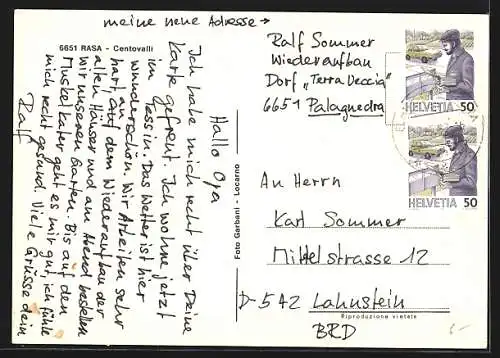 meine neue Adresse →
6651 RASA - Centovalli
Hallo Opa
Ich habe mich recht über Deine
Karte gefreut. Ich wohne jetzt
im Tessin. Das Wetter ist hier
wunderschön. Wir Arbeiten sehr
hart, an dem Wiederaufbau der
alten Häuser und am Abend bestellen
wir unseren Garten. Bis auf den
Muskelkater geht es mir gut, ich fühle
mich recht gesund. Viele Grüsse dein
Ralf
Foto Garbani - Locarno
Ralf Sommer
Wiederaufbau
Dorf „Terra Vecchia"
6651 Palagnedra
HELVETIA 50
HELVETIA 50
An Herrn
Karl Sommer
Mittelstrasse 12
D-542 Lahnstein
BRD
Riproduzione vietata